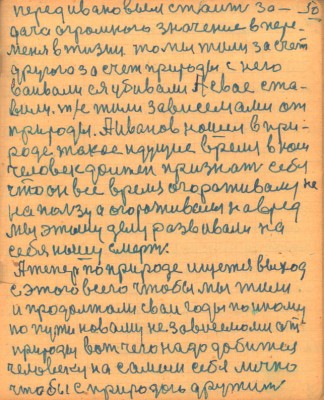 перед ивановым стаит за- 50
дача огромного значение в пере
меня в жизни то мы жили за счет
другого за счет природы с него
ваивали ея убивали А свае ста-
вили. т/е жили зависемами от
природы. А иванов нашел в при-
роде такое идущие время в ком
человек должен признат себя
что он все время огораживалн не
на ползу а огораживался на вред
мы этому делу развивали на
себя нашу смерт.
А теперь по природе ищется выход
с этого всего чтобы мы жили
и продолжали сваи годы по иному
по пути новами независемоми от
природы вот чего надо добится
человеку на самом себя лично
чтобы с природою дружит